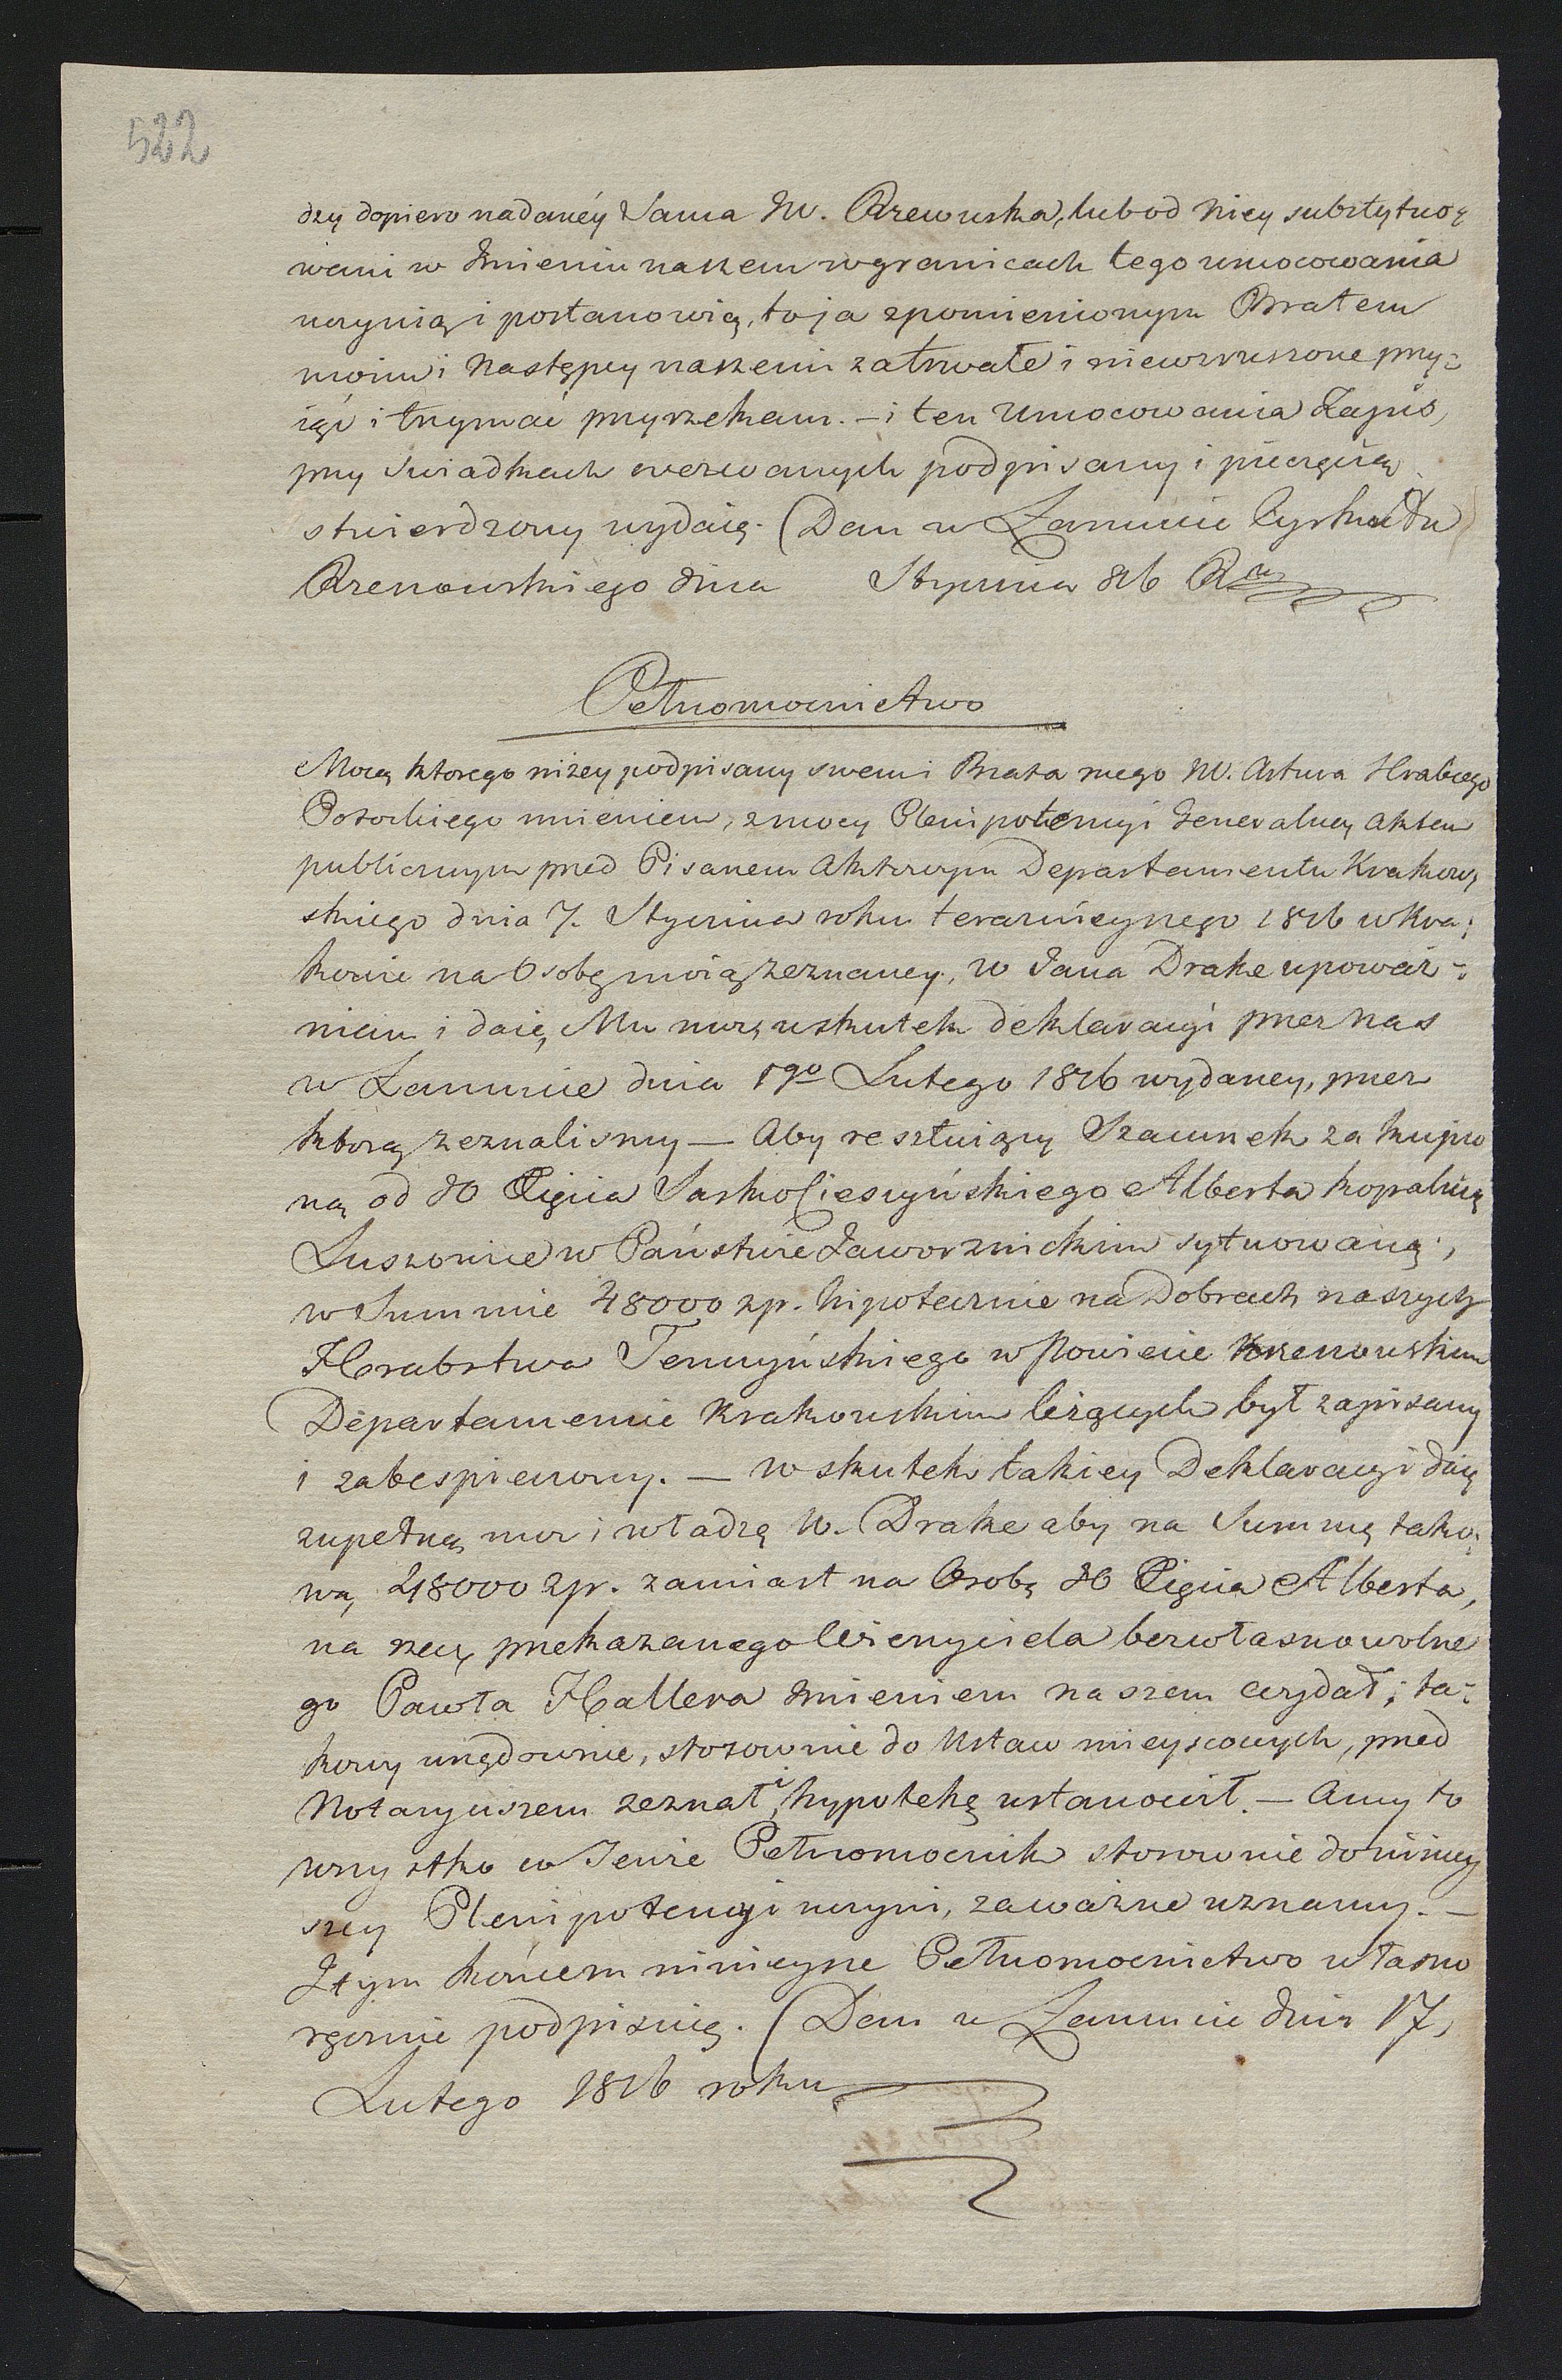 522
dzy dopiero nadanéy Sama JW. Rzewuska, lub od Niey substytuo-
wani w Imieniu naszem w granicach tego umocowania
uczynią i postanowią, to ja z pomienionym Bratem
moim i Następcy naszemi za trwałe i niewzruszone przy-
iąć i trzymać przyrzekam. – i ten Umocowania Zapis,
przy Swiadkach wezwanych podpisany i pieczęcią
stwierdzony wydaię. Dan w Łańcucie Cyrkułu
Rzeszowskiego dnia Stycznia 816 Ru
Pełnomocnictwo
Mocą ktorego niżey podpisany swem i Brata mego JW. Artura Hrabiego
Potockiego imieniem, z mocy Plenipotencyi Generalney Aktem
publicznym przed Pisarzem Aktowym Departamentu Krakow-
skiego dnia 7. Stycznia roku teraznieyszego 1816 w Kra-
kowie na Osobę moią zeznaney, W Jana Drake upoważ-
niam i daię Mu moc, w skutek deklaracyi przez nas
w Łańcucie dnia 1go Lutego 1816 wydaney, przez
ktorą zeznalismy — Aby resztuiący Szacunek za kupio
ną od JO Xięcia Sasko Cieszyńskiego Alberta kopalnią
Luszowice w Państwie Jaworznickim sytuowaną,
w Summie 48000 zp. hipotecznie na Dobrach naszych
Hrabstwa Tenczyńskiego w Powiecie Krzeszowskim
Departamencie Krakowskim leżących był zapisany
i zabespieczony. — W skutek takiey Deklaracyi daię
zupełną moc i władzę W. Drake aby na Summę tako-
wą 48000 zp. zamiast na Osobę JO Xięcia Alberta,
na rzecz przekazanego Wierzyciela bezwłasnowolne
go Pawła Hallera Imieniem naszem wydał; ta-
kowy urzędownie, stosownie do Ustaw mieyscowych, przed
Notaryuszem zeznał, i hypotekę ustanowił. — A my to
wszystko co Tenże Pełnomocnik stosownie do niniey
szey Plenipotencyi uczyni, za ważne uznamy. —
Z tym końcem ninieysze Pełnomocnictwo własno
ręcznie podpisuię. Dan w Łańcucie dnia 17,
Lutego 1816 roku